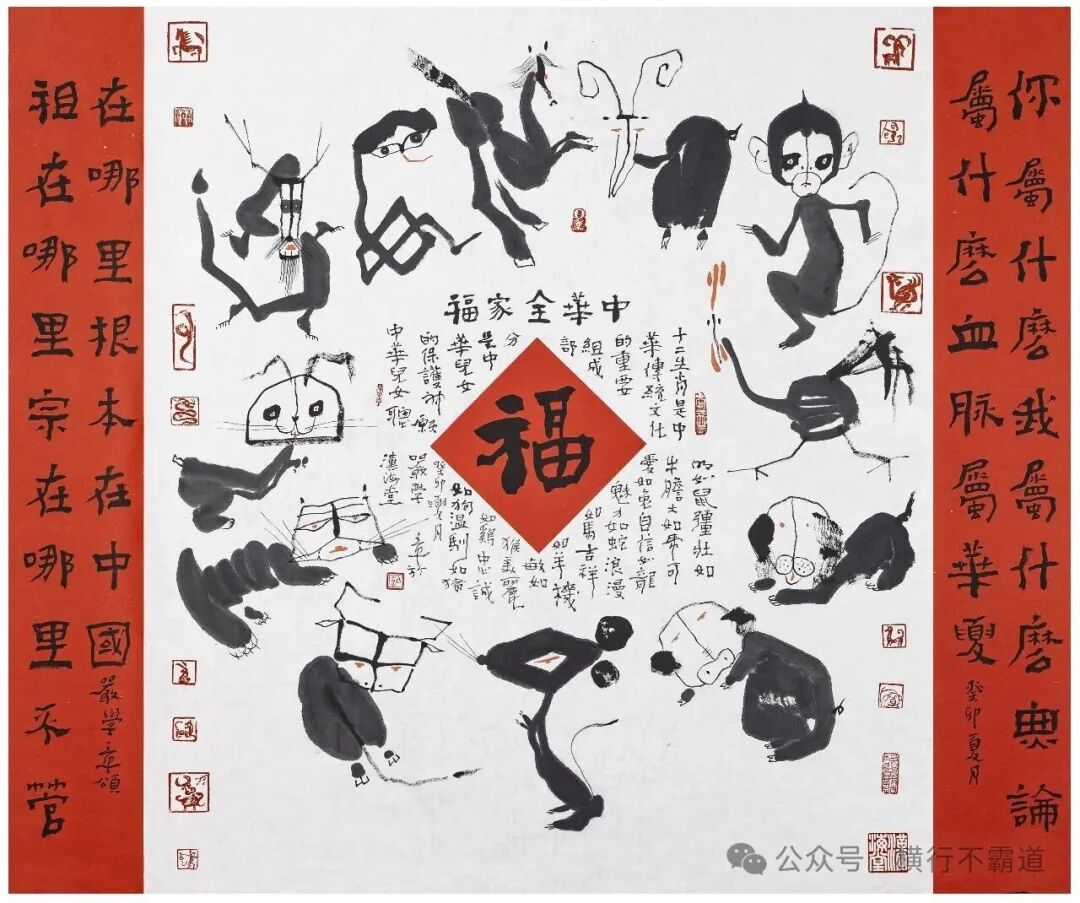 你屬什麽我屬什麽無論
屬什麽血脉屬華夏
癸卯夏月
中華全家福
十二生肖是中
華傳統文化
的重要
組成
部
分
是中
華兒女
的保護神願
中華兒女聰
福
明如鼠强壯如
牛膽大如虎可
愛如兔自信如龍
魅力如蛇浪漫
如馬吉祥
如羊機
敏如
猴美麗
如鷄忠誠
如狗温馴如猪
癸卯夏月
嚴學章於
海堂
祖在哪里宗在哪里不管
在哪里根本在中國
嚴學章頌
公众号 横行不霸道